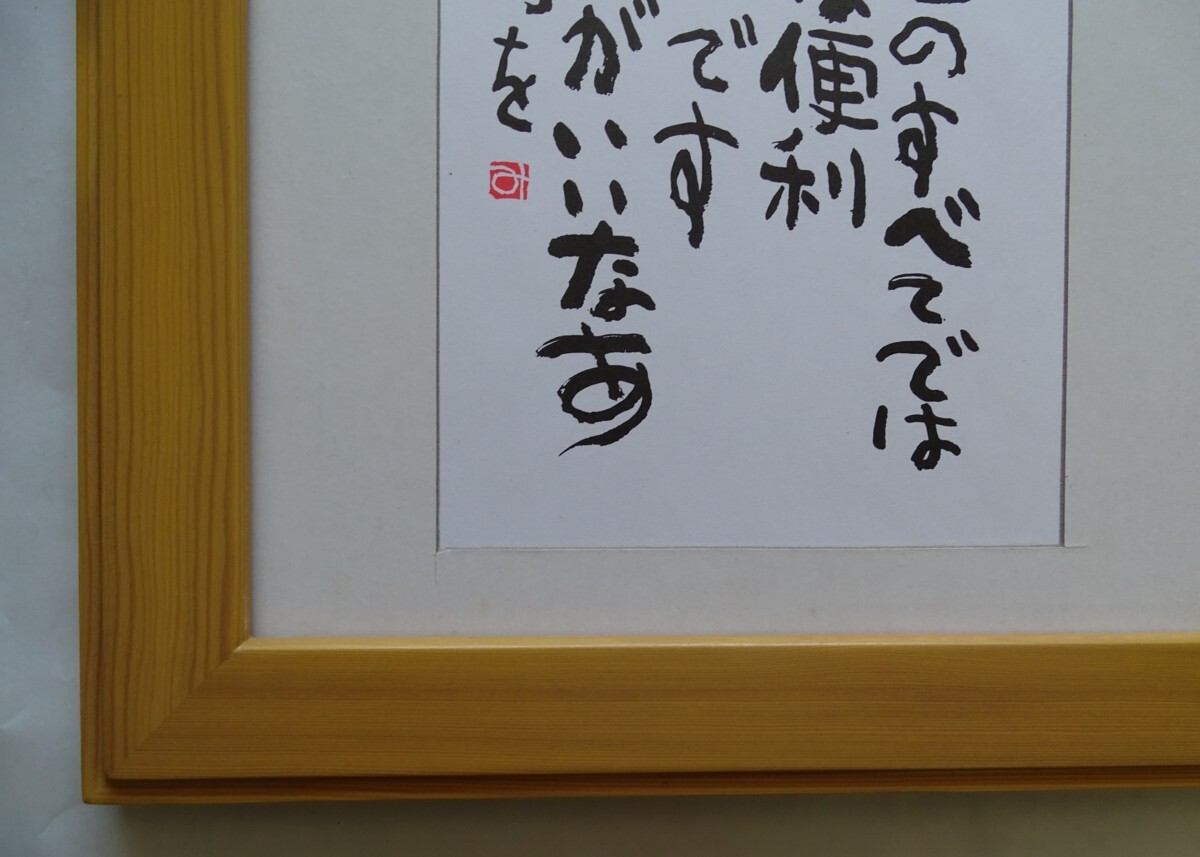 のすべてでは
便利
です
がいいなあ
を